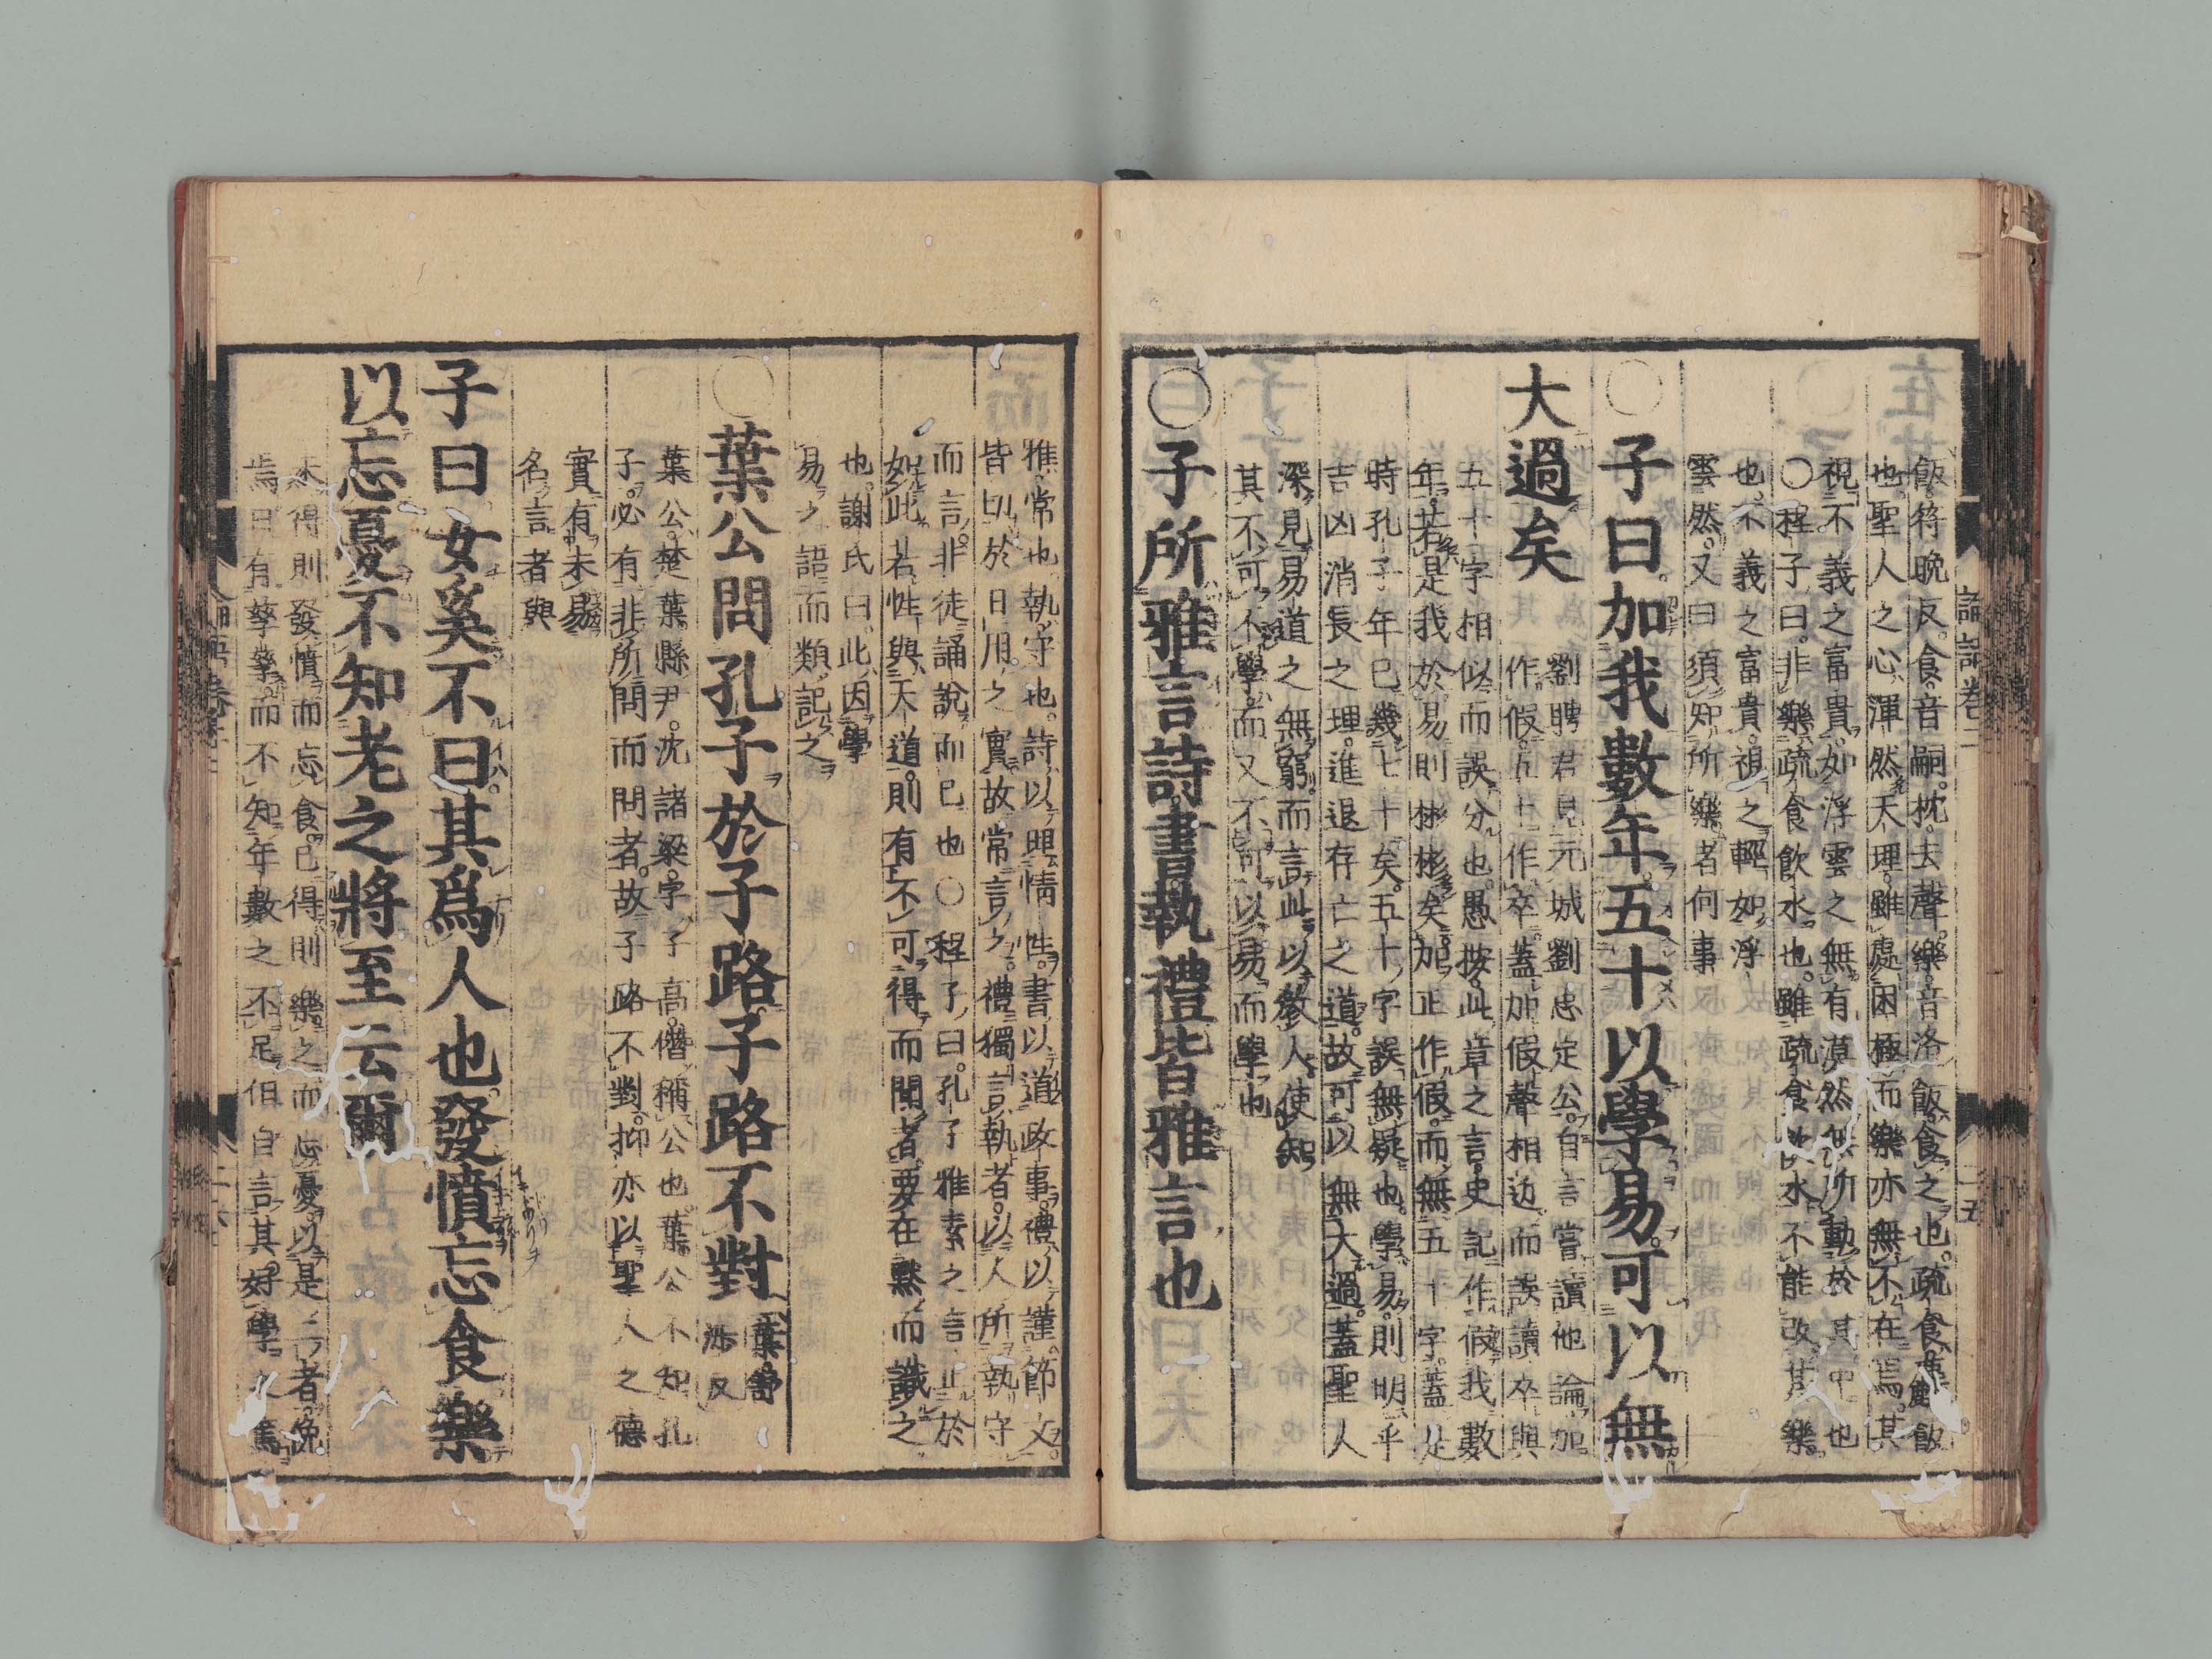 飯符晚反。食音嗣。枕去聲。樂音洛。飯食之也。疏食麄飯
也。聖人之心渾然天理。雖處困極而樂亦無不在焉。其
視不義之富貴。如浮雲之無有。漠然無所動於其中也
○程子曰。非樂疏食飲水也。雖疏食飲水。不能改其樂
也。不義之富貴。視之輕如浮
雲然。又曰須知所樂者何事
○子曰加我數年五十以學易可以無
大過矣
劉聘君見元城劉忠定公。自言嘗讀他論。加
作假。五十作卒。蓋加假聲相近而誤讀。卒與
五十字相似而誤分也。愚按此章之言。史記作假我數
年。若是我於易則彬彬矣。加正作假。而無五十字。蓋是
時孔子年已幾七十矣。五十字誤無疑也。學易。則明乎
吉凶消長之理。進退存亡之道。故可以無大過。蓋聖人
深見易道之無窮。而言此以教人。使知
其不可不學。而又不可以易而學也
○子所雅言詩書執禮皆雅言也
雅常也執守也。詩以理情性。書以道政事。禮以謹節文。
皆切於日用之實。故常言之。禮獨言執者。以人所執守
而言。非徒誦說而已也○程子曰。孔子雅素之言止於
如此。若性與天道。則有不可得而聞者。要在默而識之
也。謝氏曰此因學
易之語而類記之
○葉公問孔子於子路子路不對葉舒涉反
葉公。楚葉縣尹。沈諸梁。字子高。僭稱公也。葉公不知孔
子。必有非所問而問者。故子路不對。抑亦以聖人之德
實有未易
名言者與
子曰女奚不曰其爲人也發憤忘食樂
以忘憂不知老之將至云爾
未得則發憤而忘食。已得則樂之而忘憂。以是二者。俛
焉日有孳孳。而不知年數之不足。但自言其好學之篤
論語卷二
二五